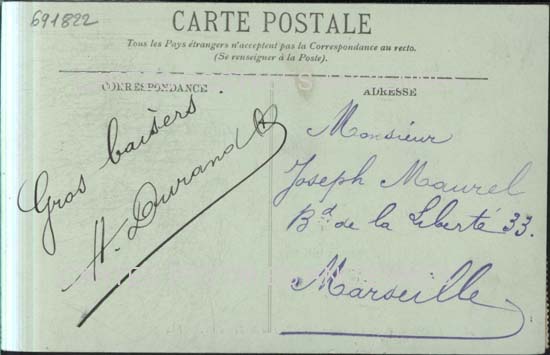 691822
CARTE POSTALE
Tous les Pays étrangers n'acceptent pas la Correspondance au recto.
(Se renseigner à la Poste).
CORRESPONDANCE
Gros baisers
H. Durand
ADRESSE
Monsieur
Joseph Maurel
Bd de la Liberté 33.
Marseille